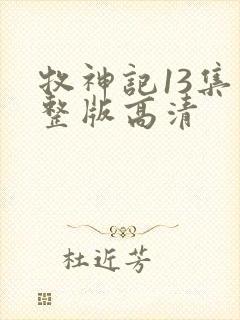 牧神记13集
整版高清
杜近芳